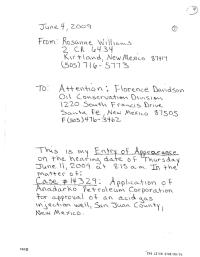 June 4, 2009
From: Rosanne Williams
2 CR 6434
Kirtland, New Mexico 87417
(505) 716-5773
To: Attention: Florence Davidson
Oil Conservation Division
1220 South Francis Drive
Santa Fe, New Mexico 87505
F(505) 476-3462
This is my Entry of Appearance
on the hearing date of Thursday
June 11, 2009 at 8:15 a.m. In the
matter of:
Case # 14329: Application of
Anadarko Petroleum Corporation
for approval of an acid gas
injection well, San Juan County,
New Mexico.